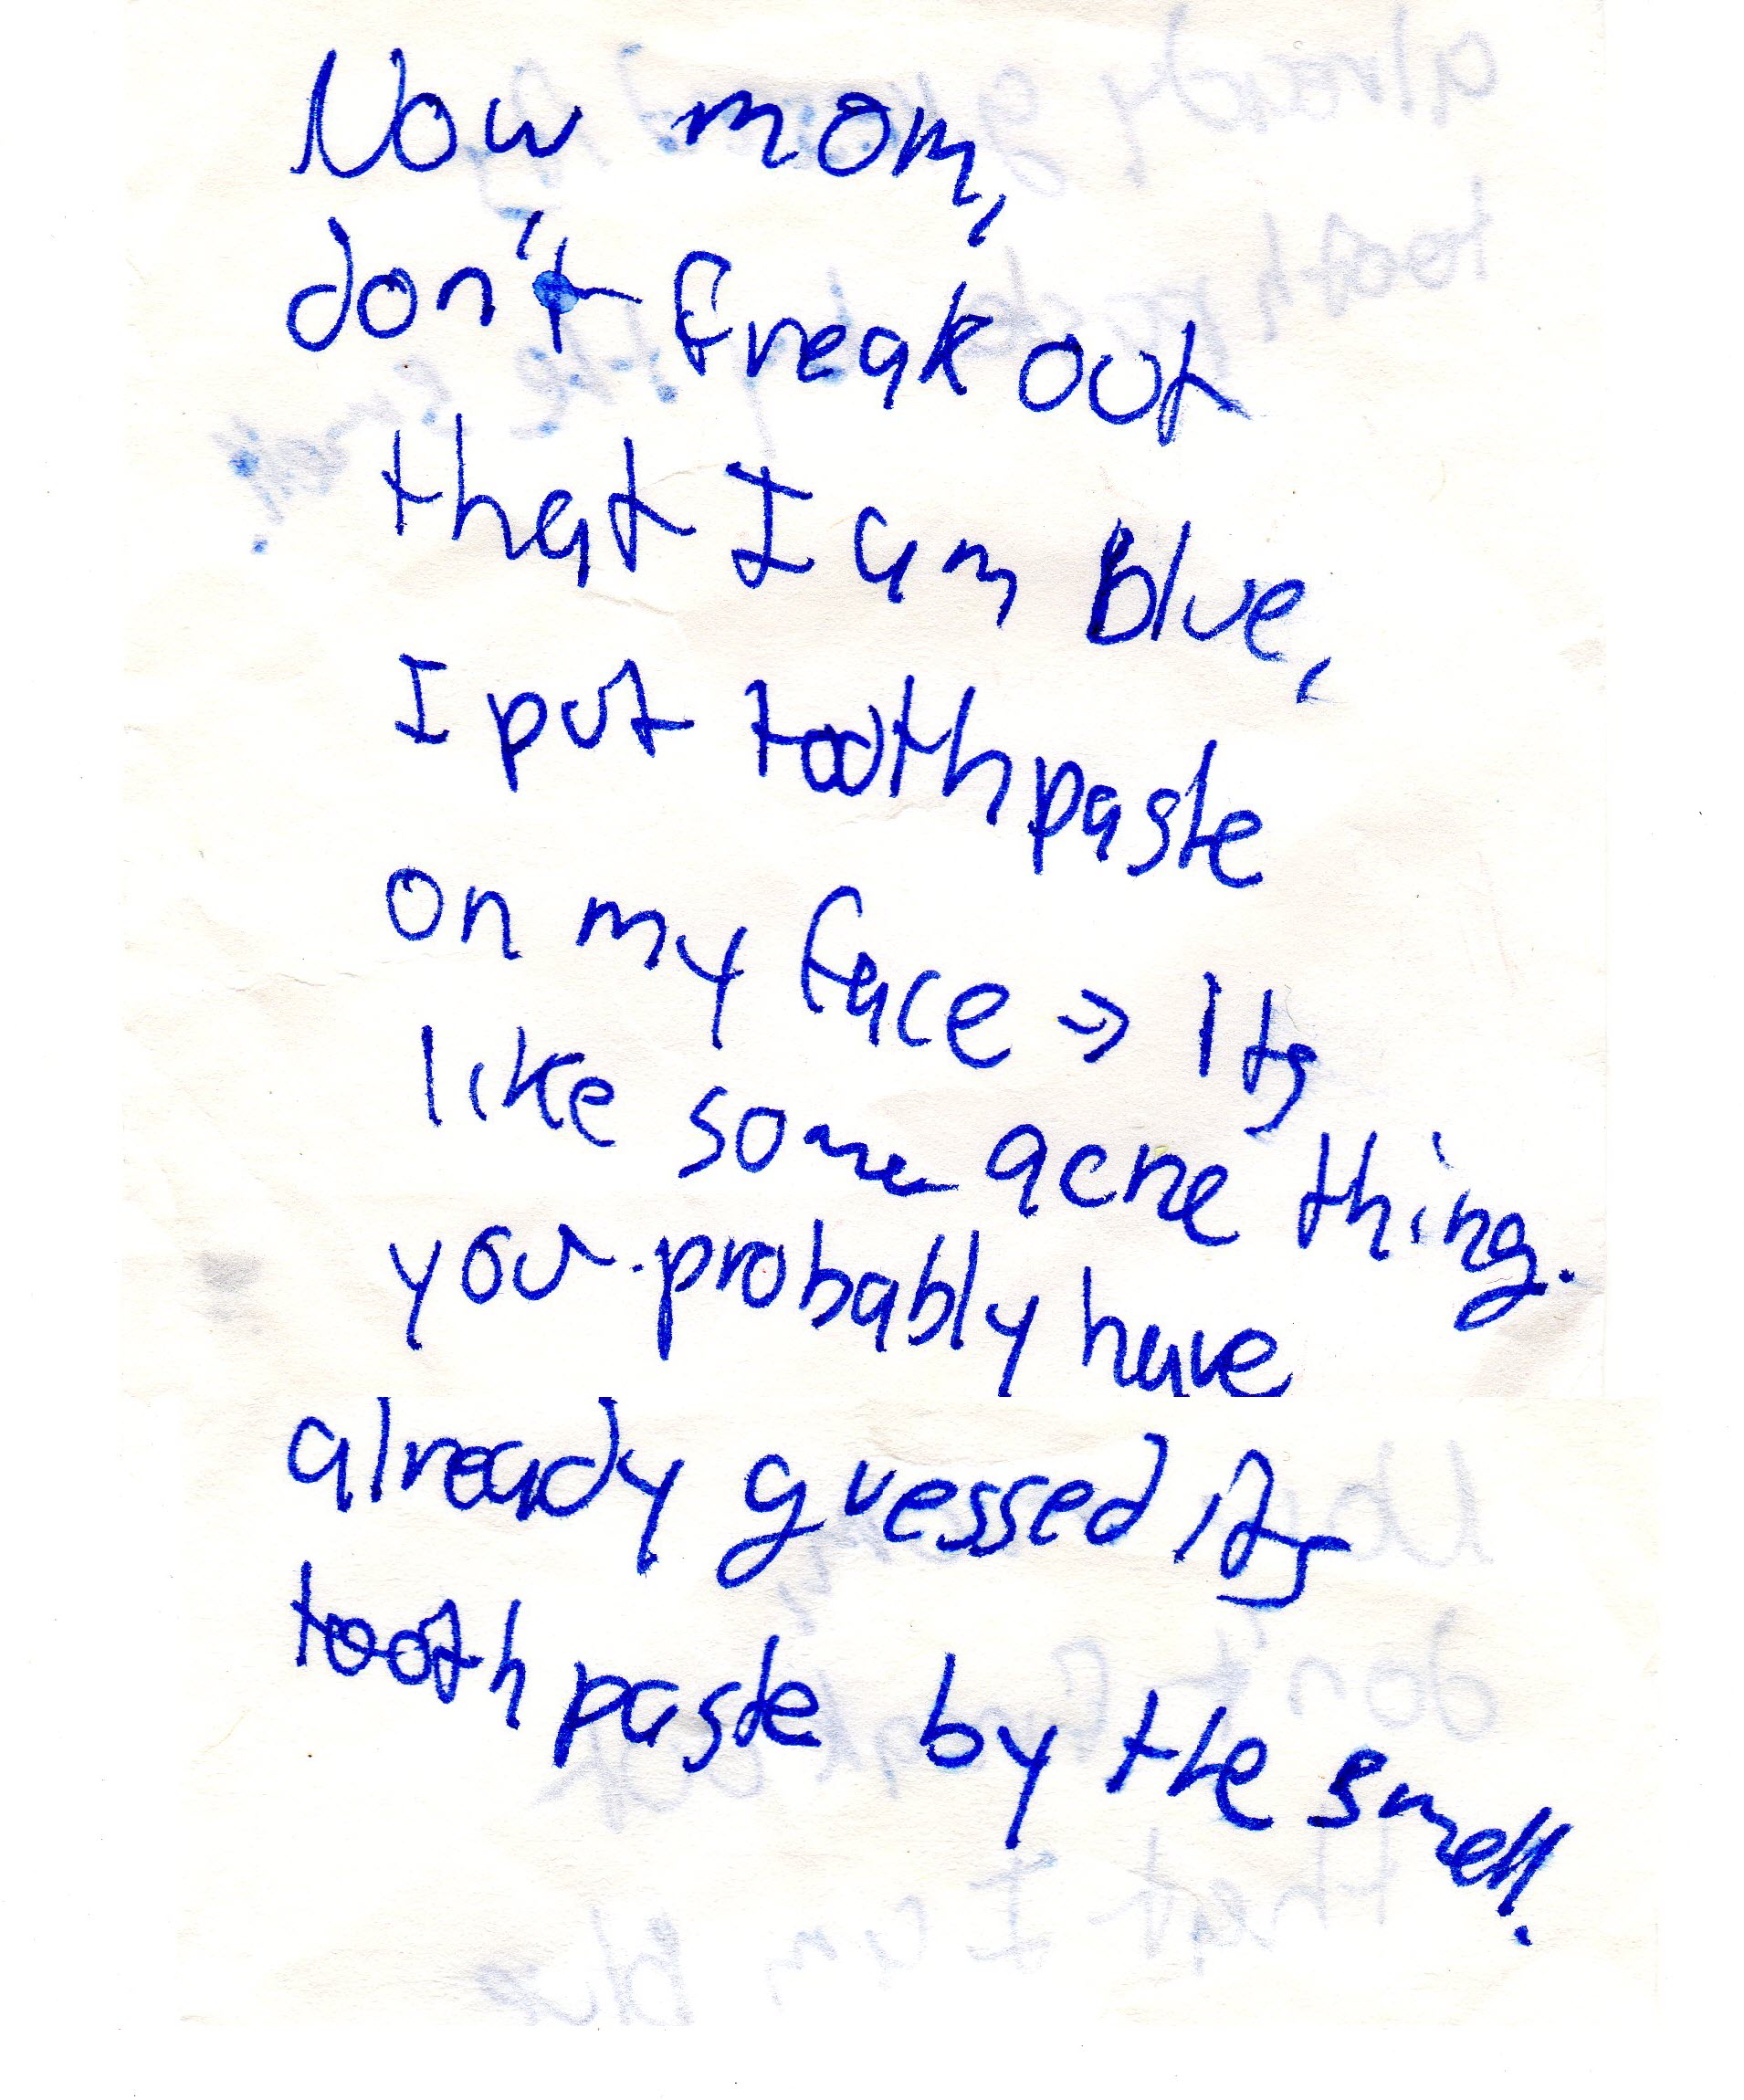 Now mom,
don't freak out
that I am blue,
I put toothpaste
on my face → Its
like some acne thing.
you probably have
already guessed its
toothpaste by the smell.